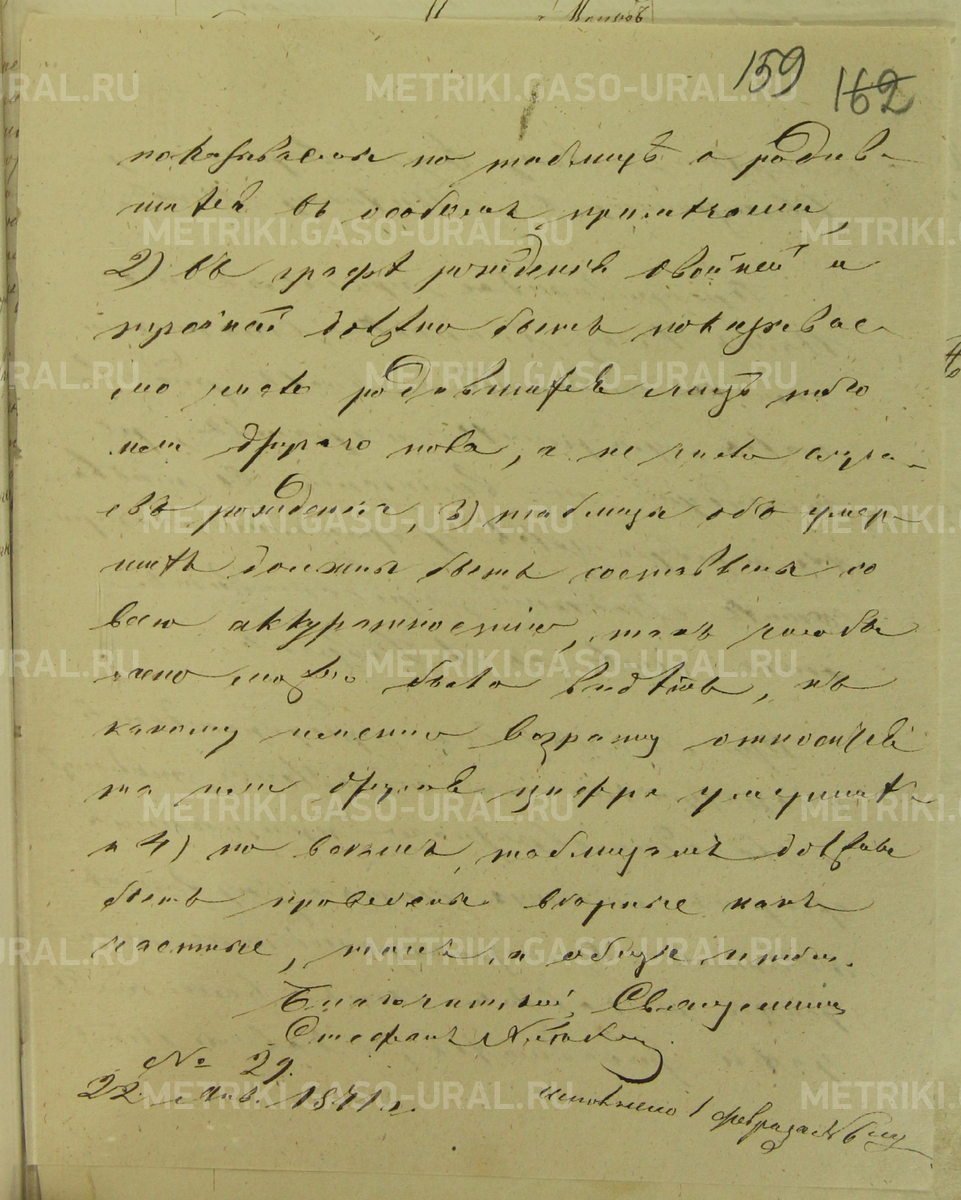 159
162
показываемы по таблицѣ о родив-
шихъ въ особомъ примѣчаніи
2) въ графѣ рожденія двойней и
тройней должно быть показывае-
мо число родившихся лицъ того
или другаго пола, а не число случа-
евъ рожденія, 3) таблица объ умер-
шихъ должна быть составлена со
всею аккуратностію, такъ чтобы
ясно можно было видѣть, къ
какому именно возрасту относится
та или другая цифра умершихъ
и 4) по всѣмъ таблицамъ должны
быть проведены вѣрные какъ
частные, такъ и общіе итоги.
Благочинный, Священникъ
Стефанъ
№ 29.
22 Янв. 1871 г.
Исполнено 1 февраля № 6
METRIKI.GASO-URAL.RU